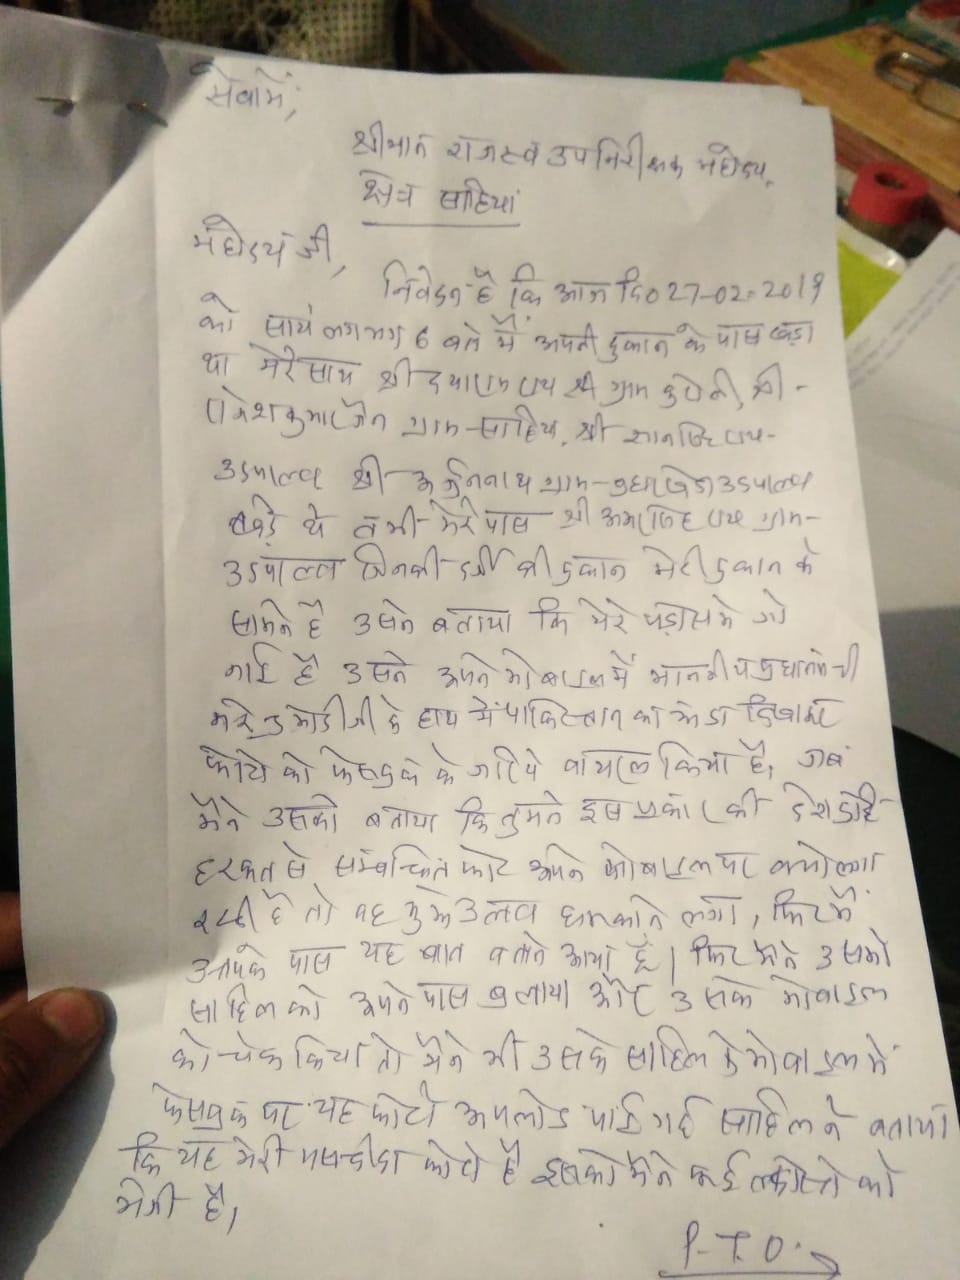 सेवामें,
श्रीमान राजस्व उपनिरीक्षक महोदय,
क्षेत्र साहिया
महोदय जी,
निवेदन है कि आज दि0 27-02-2019
को सायं लगभग 6 बजे मैं अपनी दुकान के पास खड़ा
था मेरे साथ श्री दयाराम राय श्री ग्राम श्री-
राजेशकुमार जैन ग्राम-साहिया, श्री राय-
उडपाल्टा श्री अर्जुननाथ ग्राम- उडपाल्टा
खड़े थे तभी मेरे पास श्री अमरसिंह राय ग्राम-
उडपाल्टा जिनकी दर्जी की दुकान मेरी दुकान के
सामने है उसने बताया कि मेरे पड़ोस मे जो
नाई है उसने अपने मोबाइल में माननीय प्रधानमंत्री
नरेन्द्र मोदी जी के हाथ में पाकिस्तान का झंडा दिखाकर
फोटो को फेसबुक के जरिये वायरल किया है, जब
मैंने उसको बताया कि तुमने इस प्रकार की देशद्रोही
हरकत से सम्बन्धित फोटो अपने मोबाइल पर क्यों लगा
रखी है तो वह मुझे उलटा धमकाने लगा, फिर मैं
आपके पास यह बात बताने आया हूँ। फिर मैंने उसको
साहिल को अपने पास बुलाया और उसके मोबाइल
को चेक किया तो मैंने भी उसके साहिल के मोबाइल में
फेसबुक पर यह फोटो अपलोड पाई गई साहिल ने बताया
कि यह मेरी पसन्दीदा फोटो है इसको मैंने कई लोगो को
भेजी है,
P.T.O.